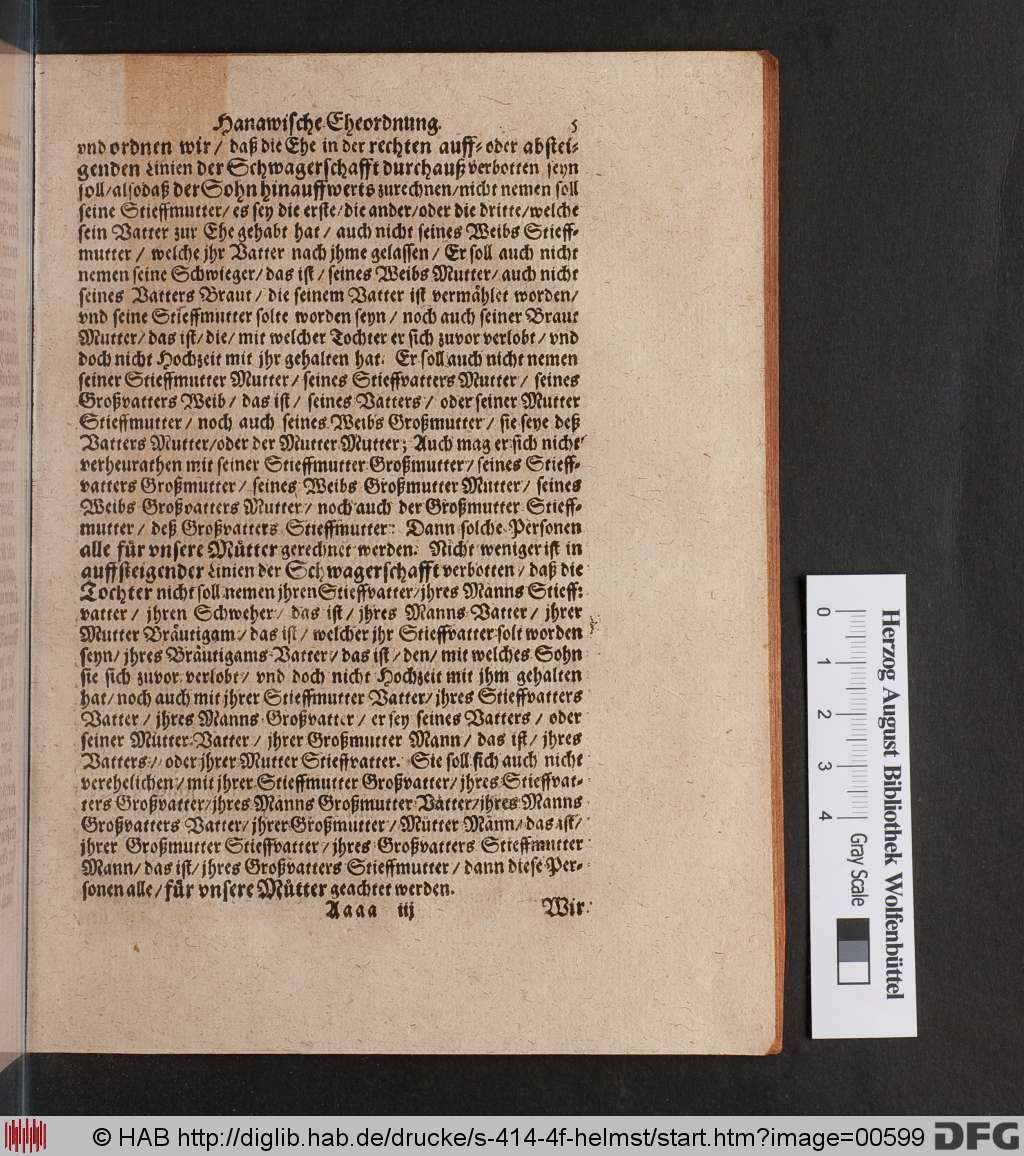 Hanawische Eheordnung. 5
vnd ordnen wir / daß die Ehe in der rechten auff- oder abstei-
genden Linien der Schwagerschafft durchauß verbotten seyn
soll/alsodaß der Sohn hinauffwerts zurechnen/nicht nemen soll
seine Stieffmutter/ es sey die erste/die ander/oder die dritte/welche
sein Vatter zur Ehe gehabt hat / auch nicht seines Weibs Stieff-
mutter / welche jhr Vatter nach jhme gelassen / Er soll auch nicht
nemen seine Schwieger/ das ist / seines Weibs Mutter/ auch nicht
seines Vatters Braut / die seinem Vatter ist vermählet worden/
vnd seine Stieffmutter solte worden seyn / noch auch seiner Braut
Mutter/ das ist/ die/ mit welcher Tochter er sich zuvor verlobt / vnd
doch nicht Hochzeit mit jhr gehalten hat. Er soll auch nicht nemen
seiner Stieffmutter Mutter/ seines Stieffvatters Mutter / seines
Großvatters Weib / das ist / seines Vatters / oder seiner Mutter
Stieffmutter / noch auch seines Weibs Großmutter / sie seye deß
Vatters Mutter/oder der Mutter Mutter; Auch mag er sich nicht
verheurathen mit seiner Stieffmutter Großmutter/ seines Stieff-
vatters Großmutter / seines Weibs Großmutter Mutter / seines
Weibs Großvatters Mutter / noch auch der Großmutter Stieff-
mutter / deß Großvatters Stieffmutter: Dann solche Personen
alle für vnsere Mütter gerechnet werden. Nicht weniger ist in
auffsteigender Linien der Schwagerschafft verbotten / daß die
Tochter nicht soll nemen jhren Stieffvatter/jhres Manns Stieff-
vatter / jhren Schweher / das ist / jhres Manns Vatter / jhrer
Mutter Bräutigam / das ist / welcher jhr Stieffvatter solt worden
seyn/ jhres Bräutigams Vatter / das ist / den / mit welches Sohn
sie sich zuvor verlobt / vnd doch nicht Hochzeit mit jhm gehalten
hat/ noch auch mit jhrer Stieffmutter Vatter/ jhres Stieffvatters
Vatter / jhres Manns Großvatter / er sey seines Vatters / oder
seiner Mutter Vatter / jhrer Großmutter Mann / das ist / jhres
Vatters / oder jhrer Mutter Stieffvatter. Sie soll sich auch nicht
verehelichen / mit jhrer Stieffmutter Großvatter / jhres Stieffvat-
ters Großvatter/jhres Manns Großmutter Vatter/jhres Manns
Großvatters Vatter/ jhrer Großmutter / Mutter Mann / das ist /
jhrer Großmutter Stieffvatter / jhres Großvatters Stieffmutter
Mann/ das ist/ jhres Großvatters Stieffmutter / dann diese Per-
sonen alle / für vnsere Mütter geachtet werden.
Aaaa iij Wir
0 1 2 3 4
Gray Scale
Herzog August Bibliothek Wolfenbüttel
© HAB http://diglib.hab.de/drucke/s-414-4f-helmst/start.htm?image=00599 DFG